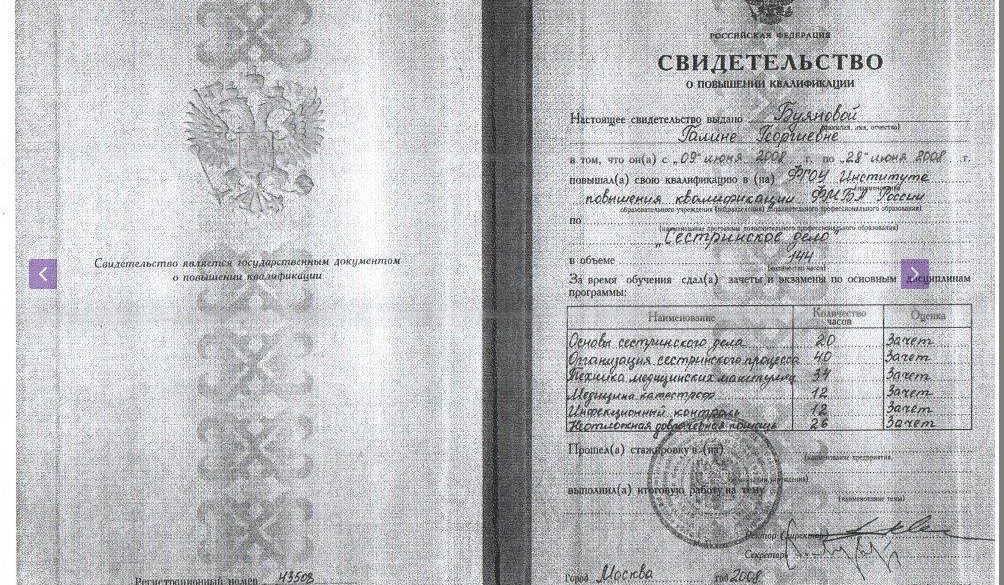 Свидетельство является государственным документом
о повышении квалификации
Регистрационный номер 43508
РОССИЙСКАЯ ФЕДЕРАЦИЯ
СВИДЕТЕЛЬСТВО
О ПОВЫШЕНИИ КВАЛИФИКАЦИИ
Настоящее свидетельство выдано Буяновой
(фамилия, имя, отчество)
Галине Георгиевне
в том, что он(а) с „09" июня 2008 г. по „28" июня 2008 г.
повышал(а) свою квалификацию в (на) ФГОУ Институте
(наименование)
повышения квалификации ФМБА России
образовательного учреждения (подразделения) дополнительного профессионального образования)
по
(наименование программы дополнительного профессионального образования)
„Сестринское дело"
в объеме 144
(количество часов)
За время обучения сдал(а) зачеты и экзамены по основным дисциплинам
программы:
Наименование Количество часов Оценка
Основы сестринского дела 20 Зачет
Организация сестринского процесса 40 Зачет
Техника медицинских манипуляц 34 Зачет
Медицина катастроф 12 Зачет
Инфекционный контроль 12 Зачет
Неотложная доврачебная помощь 26 Зачет
Прошел(а) стажировку в (на)
(наименование предприятия,
выполнил(а) итоговую работу на тему
(наименование темы)
Ректор (директор)
Секретарь
Город Москва год 2008